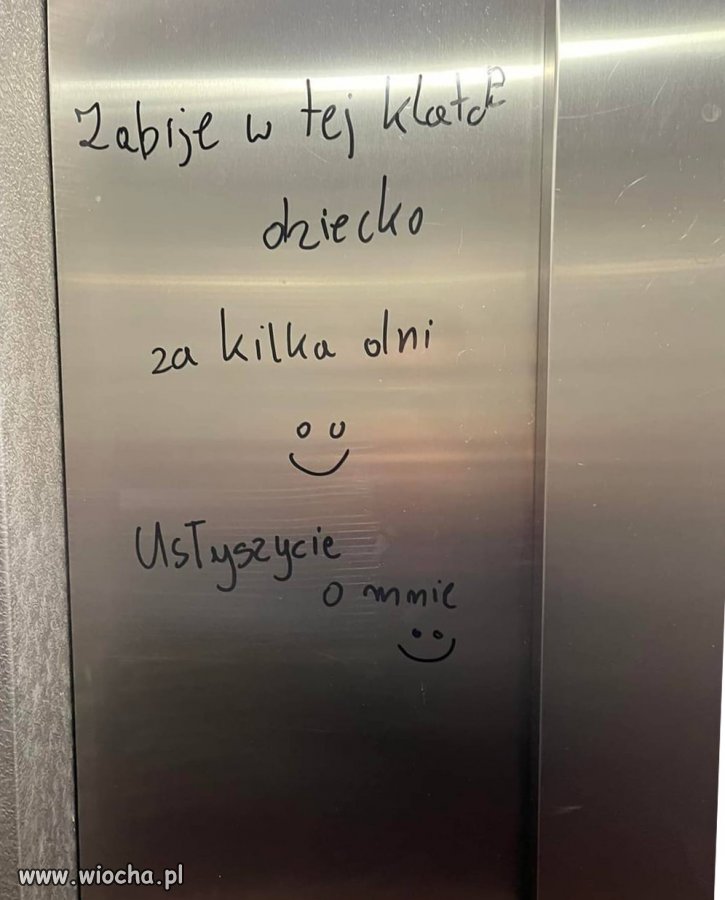 Zabije w tej klatce
dziecko
za kilka dni
Usłyszycie
o mnie
www.wiocha.pl